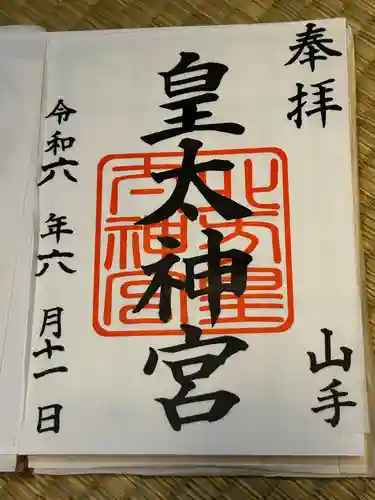 奉拝
山手
皇太神宮
令和六年六月十一日